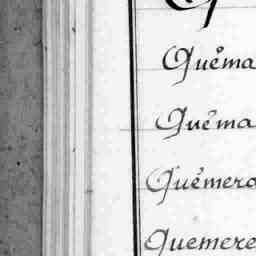 Quéma
Quéma
Quémera
Quemere